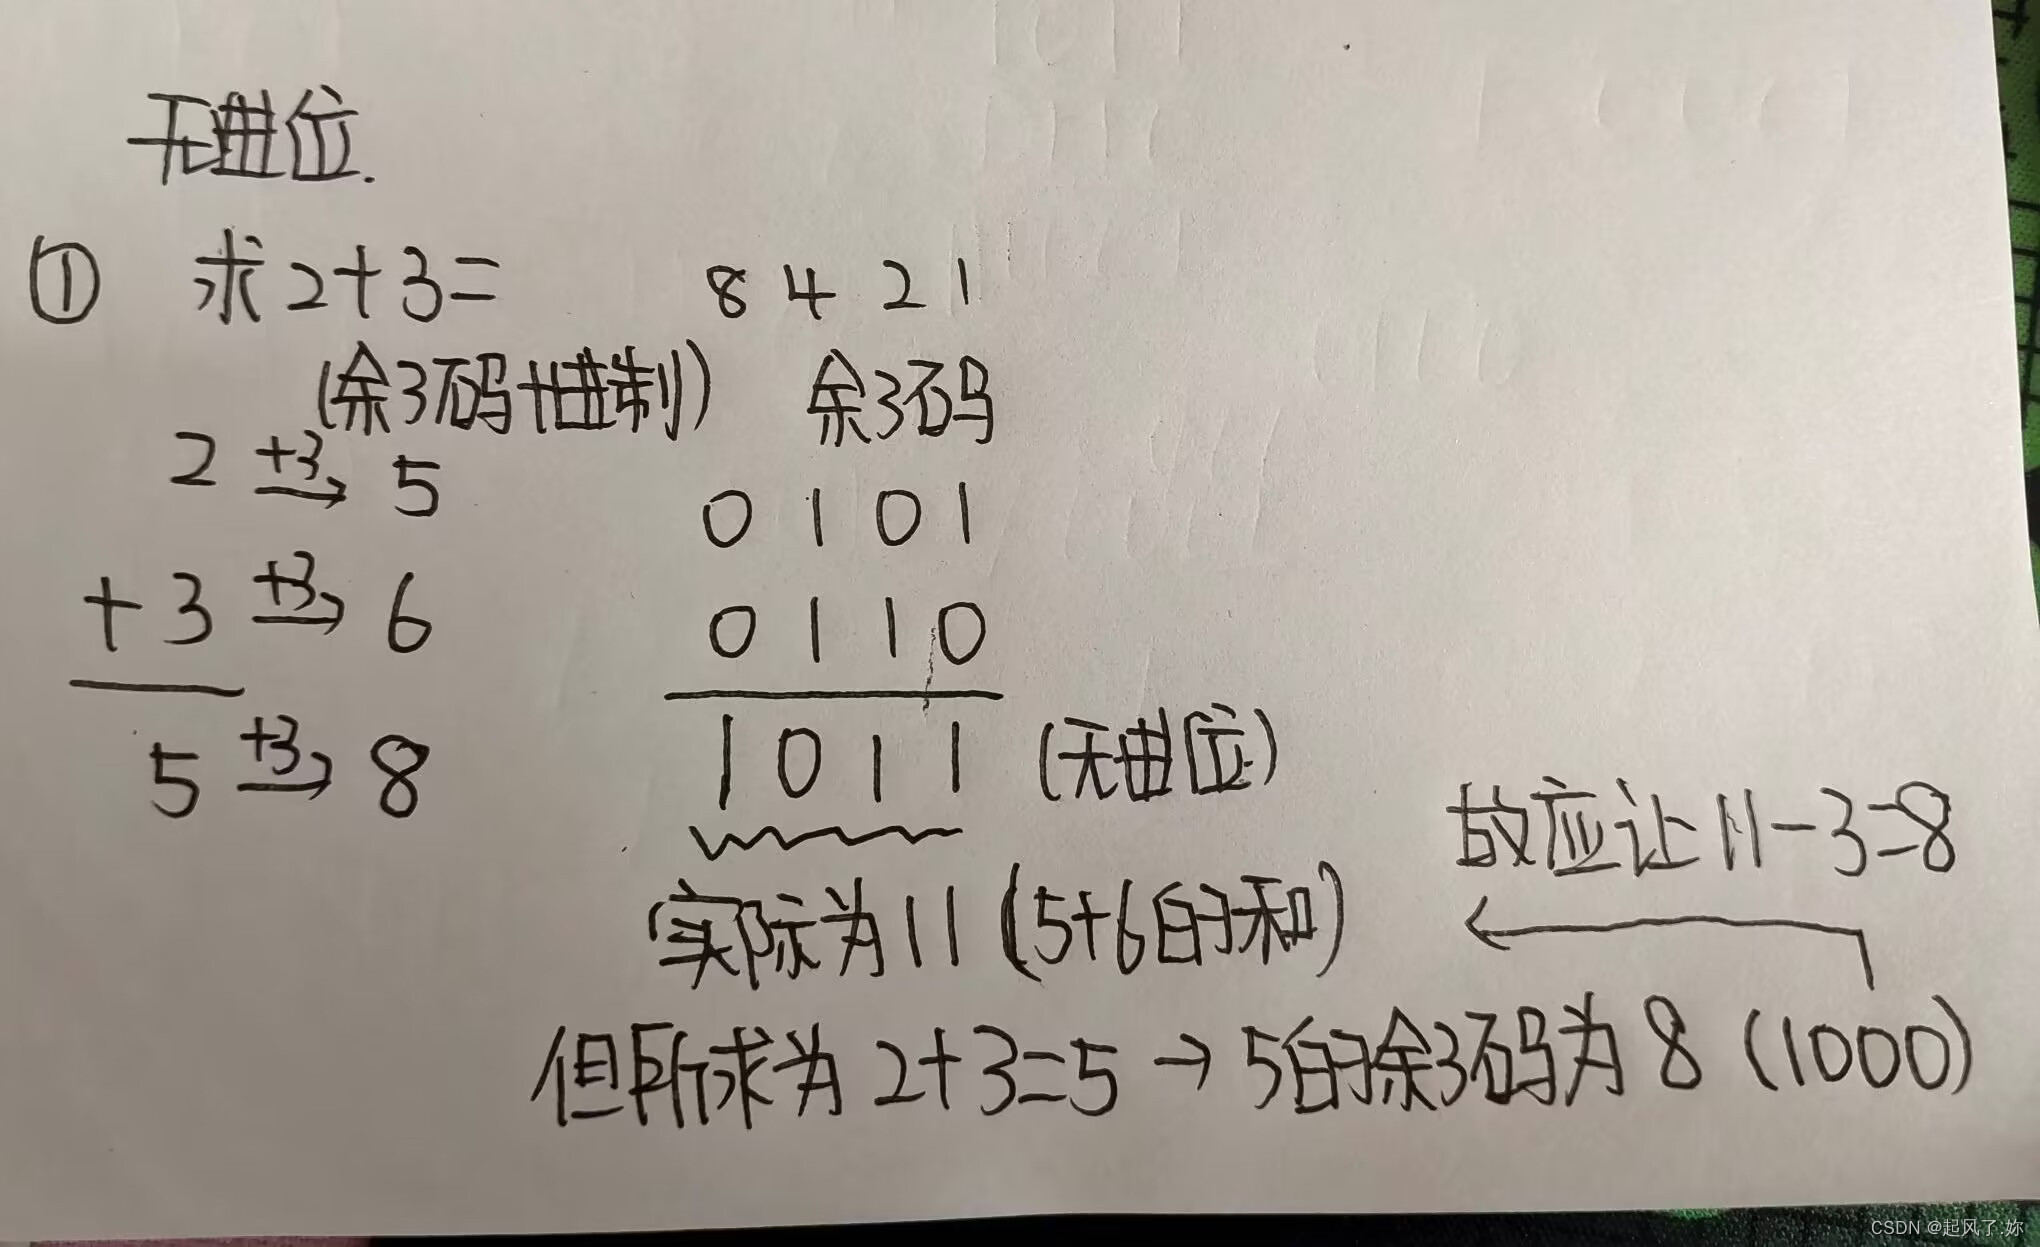 无进位.
① 求2+3= 8 4 2 1
(余3码十进制) 余3码
2 +3→ 5 0 1 0 1
+ 3 +3→ 6 0 1 1 0
5 +3→ 8 1 0 1 1 (无进位)
故应让11-3=8
实际为11(5+6的和)
但所求为2+3=5→5的余3码为8(1000)
CSDN @起风了.妳